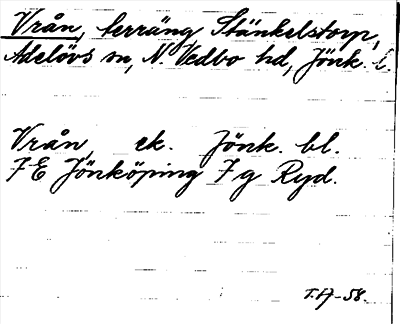 Vrån, terräng Stänkelstorp,
Adelövs sn, N. Vedbo hd, Jönk. l.
Vrån, ek. Jönk. bl.
7E Jönköping 7g Ryd.
T.H-58.